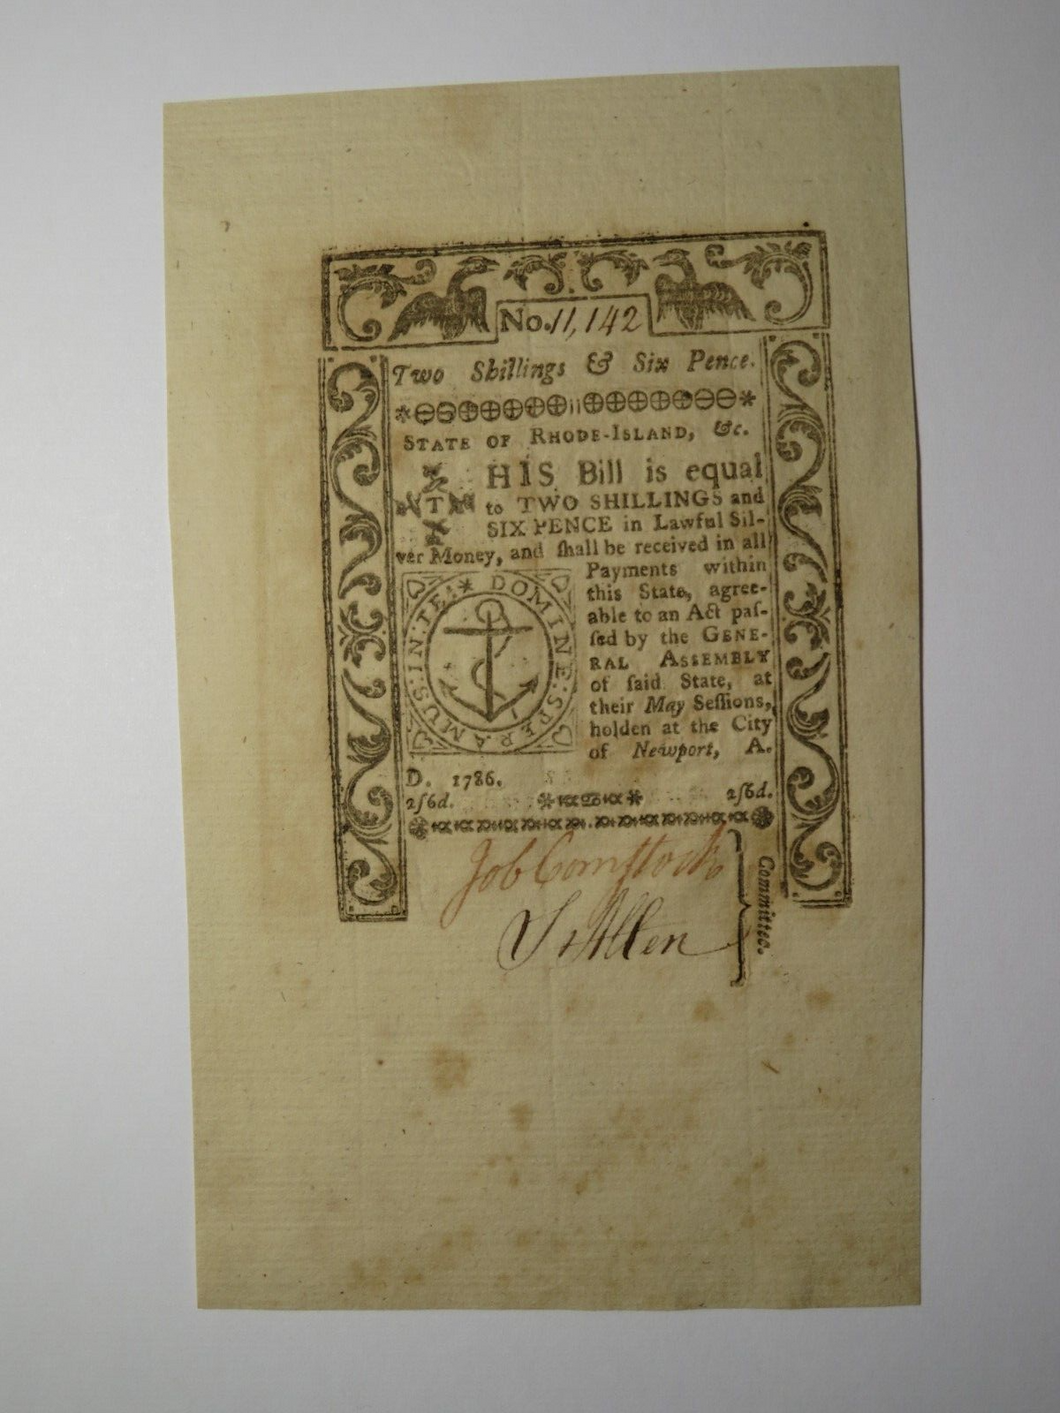 No. 11,142
Two Shillings & Six Pence.
STATE OF RHODE-ISLAND, &c.
THIS Bill is equal
to TWO SHILLINGS and
SIX PENCE in Lawful Sil-
ver Money, and ſhall be received in all
Payments within
this State, agree-
able to an Act paſ-
ſed by the GENE-
RAL ASSEMBLY
of ſaid State, at
their May Seſſions,
holden at the City
of Newport, A.
D. 1786.
DOMINE: SPERAMUS: IN: TE: *
2ſ6d. 2ſ6d.
Job Comſtock
S Allen
Committee.